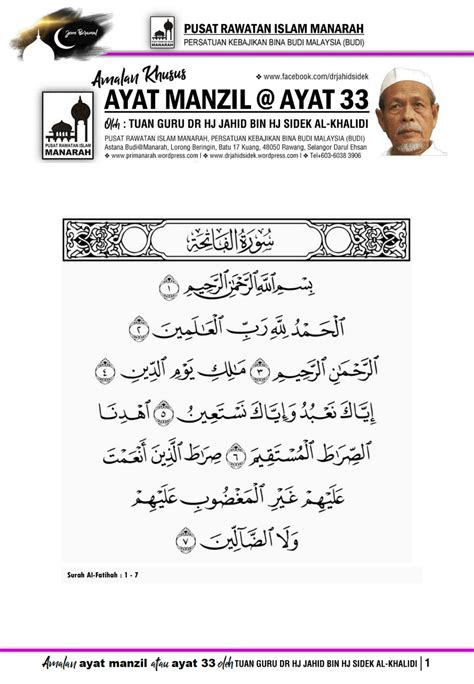 Jom Beramal
PUSAT RAWATAN ISLAM MANARAH
PERSATUAN KEBAJIKAN BINA BUDI MALAYSIA (BUDI)
Amalan Khusus
❖ www.facebook.com/drjahidsidek
AYAT MANZIL @ AYAT 33
Oleh : TUAN GURU DR HJ JAHID BIN HJ SIDEK AL-KHALIDI
PUSAT RAWATAN ISLAM
MANARAH
PUSAT RAWATAN ISLAM MANARAH, PERSATUAN KEBAJIKAN BINA BUDI MALAYSIA (BUDI)
Astana Budi@Manarah, Lorong Beringin, Batu 17 Kuang, 48050 Rawang, Selangor Darul Ehsan
❖ www.primanarah.wordpress.com I ❖ www.drjahidsidek.wordpress.com I ❖ Tel+603-6038 3906
سُورَةُ الْفَاتِحَةِ
بِسْمِ اللَّهِ الرَّحْمَٰنِ الرَّحِيمِ ١
الْحَمْدُ لِلَّهِ رَبِّ الْعَالَمِينَ ٢
الرَّحْمَٰنِ الرَّحِيمِ ٣ مَالِكِ يَوْمِ الدِّينِ ٤
إِيَّاكَ نَعْبُدُ وَإِيَّاكَ نَسْتَعِينُ ٥ اهْدِنَا
الصِّرَاطَ الْمُسْتَقِيمَ ٦ صِرَاطَ الَّذِينَ أَنْعَمْتَ
عَلَيْهِمْ غَيْرِ الْمَغْضُوبِ عَلَيْهِمْ
وَلَا الضَّالِّينَ ٧
Surah Al-Fatihah : 1 - 7
Amalan ayat manzil atau ayat 33 oleh TUAN GURU DR HJ JAHID BIN HJ SIDEK AL-KHALIDI | 1